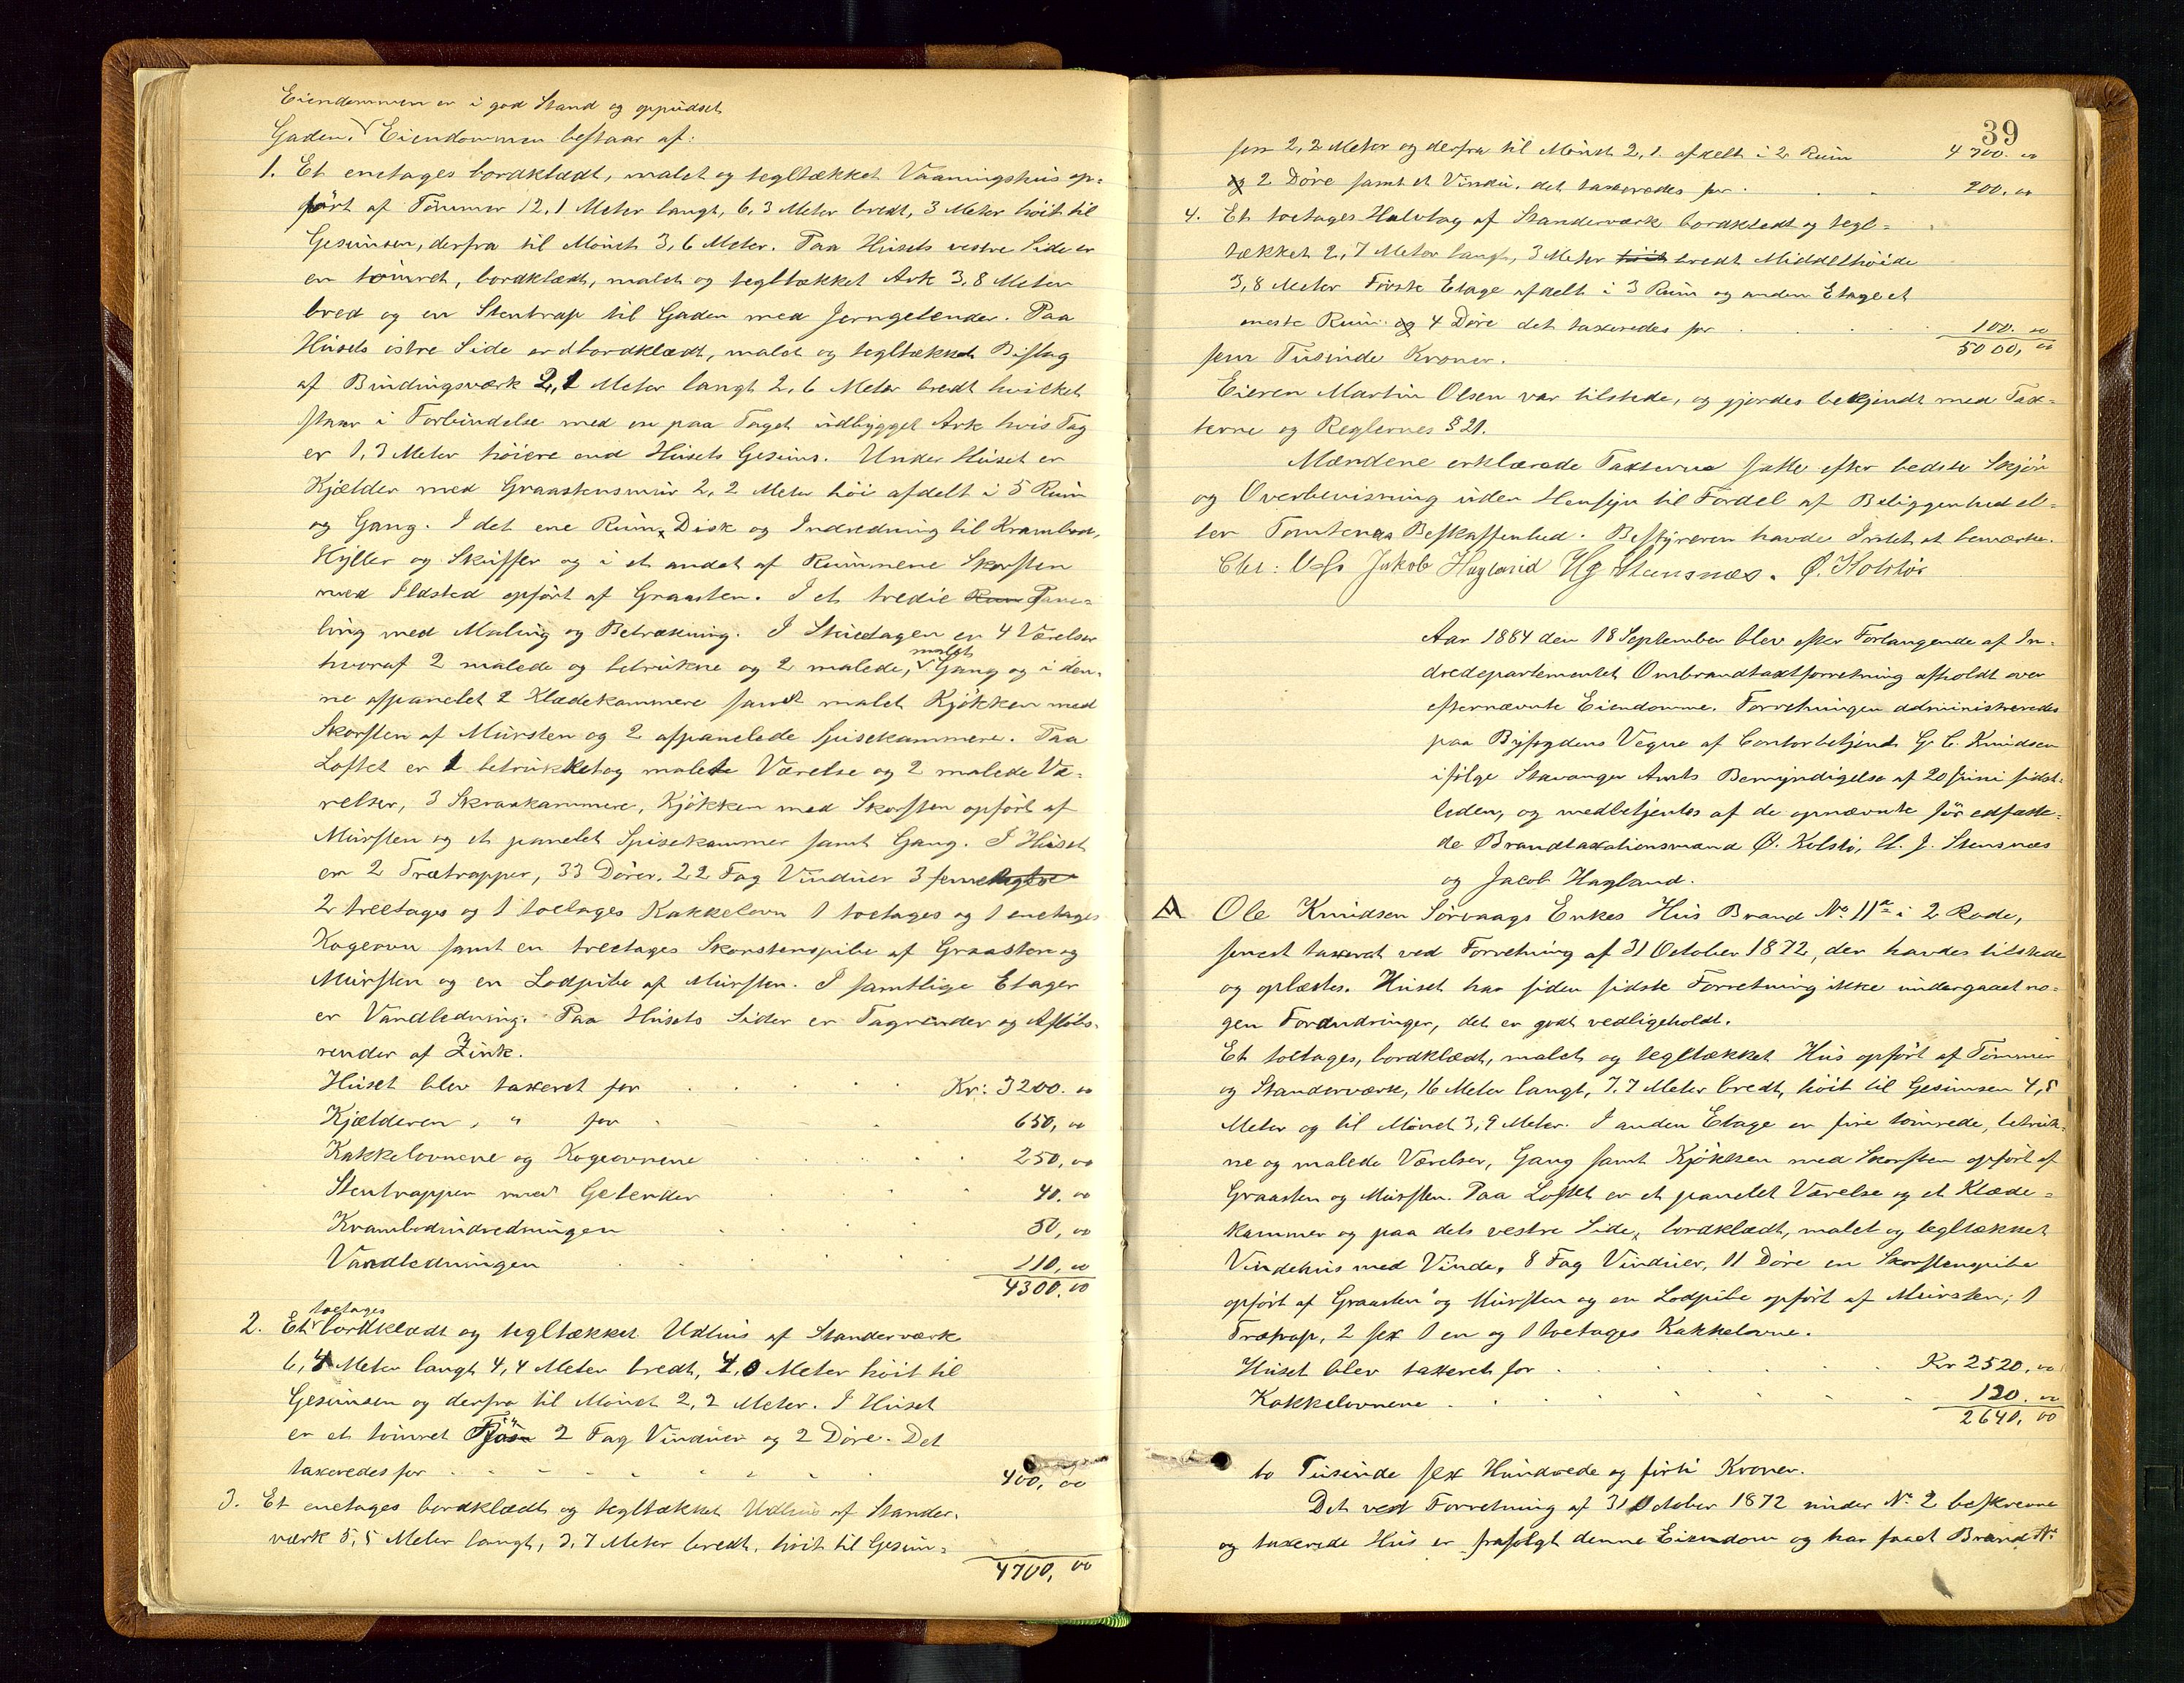 Eiendommen er i god Stand og oppudset
Gaden. Eiendommen bestaar af:
1. Et enetages bordklædt, malet og tegltækket Vaaningshus op-
ført af Tømmer 12,1 Meter langt, 6,3 Meter bredt, 3 Meter høit til
Gesimsen, derfra til Mønet 3,6 Meter. Paa Husets vestre Side er
en tømret, bordklædt, malet og tegltækket Ark 3,8 Meter
bred og en Stentrap til Gaden med Jerngelender. Paa
Husets østre Side er et bordklædt, malet og tegltækket Bislag
af Bindingsværk 2,1 Meter langt 2,6 Meter bredt hvilket
staar i Forbindelse med en paa Taget udbygget Ark hvis Tag
er 1,3 Meter høiere end Husets Gesims. Under Huset er
Kjælder med Graastensmur 2,2 Meter høi afdelt i 5 Rum
og Gang. I det ene Rum Disk og Indredning til Krambod,
Hyller og Skuffer og i et andet af Rummene Skorsten
med Ildsted opført af Graasten. I et tredie Rum Pane-
ling med Maling og Betrækning. I Stuetagen er 4 Værelser
malet
hvoraf 2 malede og betrukne og 2 malede, Gang og i den-
ne afpanelet 2 Klædekammere samt malet Kjøkken med
Skorsten af Mursten og 2 afpanelede Spisekammere. Paa
Loftet er 1 betrukket og malet Værelse og 2 malede Væ-
relser, 3 Skraakammere, Kjøkken med Skorsten opført af
Mursten og et panelet Spisekammer samt Gang. I Huset
er 2 Trætrapper, 33 Dører, 22 Fag Vinduer 3 femetages
2 treetages og 1 toetages Kakkelovn 1 toetages og 1 enetages
Kogeovn samt en treetages Skorstenspibe af Graasten og
Mursten og en Lodpibe af Mursten. I samtlige Etager
er Vandledning. Paa Husets Sider er Tagrender og Afløbs-
render af Zink.
Huset blev taxeret for Kr: 3200.00
Kjælderen, " for 650,00
Kakkelovnene og Kogeovnene 250,00
Stentrappen med Gelender 40,00
Krambodindredningen 50,00
Vandledningen 110,00
4300.00
toetages
2. Et bordklædt og tegltækket Udhus af Standerværk
6,4 Meter langt 4,4 Meter bredt, 4,0 Meter høit til
Gesimsen og derfra til Mønet 2,2 Meter. I Huset
er et tømret Fjøs 2 Fag Vinduer og 2 Døre. Det
taxeredes for 400,00
3. Et enetages bordklædt og tegltækket Udhus af Stander-
værk 5,5 Meter langt, 3,7 Meter bredt, høit til Gesim-
4700,00
39
sen 2,2 Meter og derfra til Mønet 2,1. afdelt i 2 Rum 4700.00
og 2 Døre samt et Vindu. det taxeredes for 200.00
4. Et toetages Halvtag af Standerværk bordklædt og tegl-
tækket 2,7 Meter langt, 3 Meter høit bredt Middelhøide
3,8 Meter Første Etage afdelt i 3 Rum og anden Etage et
eneste Rum og 4 Døre det taxeredes for 100.00
fem Tusinde Kroner. 5000,00
Eieren Martin Olsen var tilstede, og gjordes bekjendt med Tax-
terne og Reglernes § 21.
Mændene erklærede Taxterne satte efter bedste Skjøn
og Overbevisning uden Hensyn til Fordel af Beliggenhed el-
ler Tomtens Beskaffenhed. Bestyreren havde Intet at bemærke.
Jakob Hagland Hg Stensnæs. Ø. Kolstø
Aar 1884 den 18 September blev efter Forlangende af In-
dredepartementet Ombrandtaxtforretning afholdt over
efternævnte Eiendomme. Forretningen administreredes
paa Byfogdens Vegne af Contorbetjent G. C. Knudsen
ifølge Stavanger Amts Bemyndigelse af 20 Juni sidst-
leden, og medbetjentes af de opnævnte før edfæste-
de Brandtaxationsmænd Ø. Kolstø, H. J. Stensnæs
og Jacob Hagland.
A Ole Knudsen Sørvaags Enkes Hus Brand No. 11a i 2 Rode,
senest taxeret ved Forretning af 31 October 1872, der havdes tilstede
og oplæstes. Huset har siden sidste Forretning ikke undergaaet no-
gen Forandringer, det er godt vedligeholdt.
Et toetages, bordklædt, malet og tegltækket Hus opført af Tømmer
og Standerværk, 16 Meter langt, 7,7 Meter bredt, høit til Gesimsen 4,8
Meter og til Mønet 3,9 Meter. I anden Etage er fire tømrede, betruk-
ne og malede Værelser, Gang samt Kjøkken med Skorsten opført af
Graasten og Mursten. Paa Loftet er et panelet Værelse og et Klæde-
kammer og paa dets vestre Side, bordklædt, malet og tegltækket
Vindehus med Vinde, 8 Fag Vinduer, 11 Døre en Skorstenspibe
opført af Graasten og Mursten og en Lodpibe opført af Mursten; 1
Trætrap, 2 sex 1 en og 1 toetages Kakkelovne.
Huset blev taxeret for Kr 2520,00
Kakkelovnene 120.00
2640,00
to Tusinde sex Hundrede og førti Kroner.
Det ved Forretning af 31 October 1872 under No. 2 beskrevne
og taxerede Hus er frasolgt denne Eiendom og har faaet Brand No.